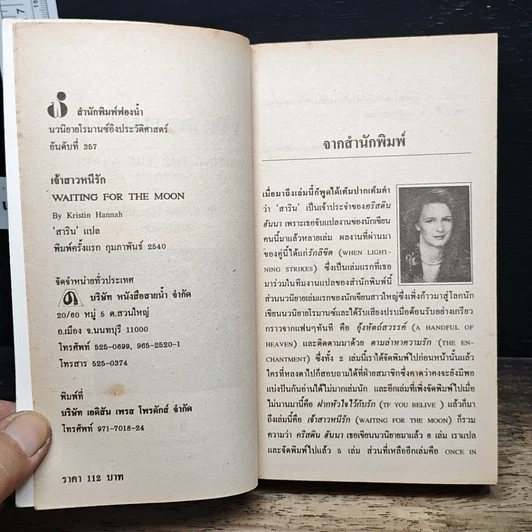 สำนักพิมพ์ฟองน้ำ
นวนิยายโรมานซ์อิงประวัติศาสตร์
อันดับที่ 357
เจ้าสาวหนีรัก
WAITING FOR THE MOON
By Kristin Hannah
'สาริน' แปล
พิมพ์ครั้งแรก กุมภาพันธ์ 2540
จัดจำหน่ายทั่วประเทศ
บริษัท หนังสือสายน้ำ จำกัด
20/60 หมู่ 5 ต.สวนใหญ่
อ.เมือง จ.นนทบุรี 11000
โทรศัพท์ 525-0699, 965-2520-1
โทรสาร 525-0374
พิมพ์ที่
บริษัท เอดิสัน เพรส โพรดักส์ จำกัด
โทรศัพท์ 971-7018-24
ราคา 112 บาท
จากสำนักพิมพ์
เมื่อมาถึงเล่มนี้ก็พูดได้เต็มปากเต็มคำ
ว่า 'สาริน' เป็นเจ้าประจำของคริสติน
ฮันนา เพราะเธอรับแปลงานของนักเขียน
คนนี้มาแล้วหลายเล่ม ผลงานที่ผ่านมา
ของคู่นี้ได้แก่รักลิขิต (WHEN LIGHT-
NING STRIKES) ซึ่งเป็นเล่มแรกที่เธอ
มาร่วมในทีมงานแปลของสำนักพิมพ์นี้
ส่วนนวนิยายเล่มแรกของนักเขียนสาวใหญ่ซึ่งเพิ่งก้าวมาสู่โลกนัก
เขียนนวนิยายโรมานซ์และได้รับเสียงปรบมือต้อนรับอย่างเกรียว
กราวจากแฟนๆทันที คือ อุ้งหัตถ์สวรรค์ (A HANDFUL OF
HEAVEN) และติดตามมาด้วย ตามล่าหาความรัก (THE EN-
CHANTMENT) ซึ่งทั้ง 2 เล่มนี้เราได้จัดพิมพ์ไปก่อนหน้านั้นแล้ว
ใครที่หลงตาไปก็สอบถามได้ที่ฝ่ายสมาชิกซึ่งคาดว่าคงจะยังมีพอ
แบ่งปันกันอ่านได้ไม่มากเล่มนัก และอีกเล่มที่เพิ่งจัดพิมพ์ไปเมื่อ
ไม่นานมานี้คือ ฝากหัวใจไว้กับรัก (IF YOU BELIVE ) แล้วก็มา
ถึงเล่มนี้คือ เจ้าสาวหนีรัก (WAITING FOR THE MOON) ก็รวม
ความว่า คริสติน ฮันนา เธอเขียนนวนิยายมาแล้ว 6 เล่ม เราแปล
และจัดพิมพ์ไปแล้ว 5 เล่ม ส่วนที่เหลืออีกเล่มคือ ONCE IN